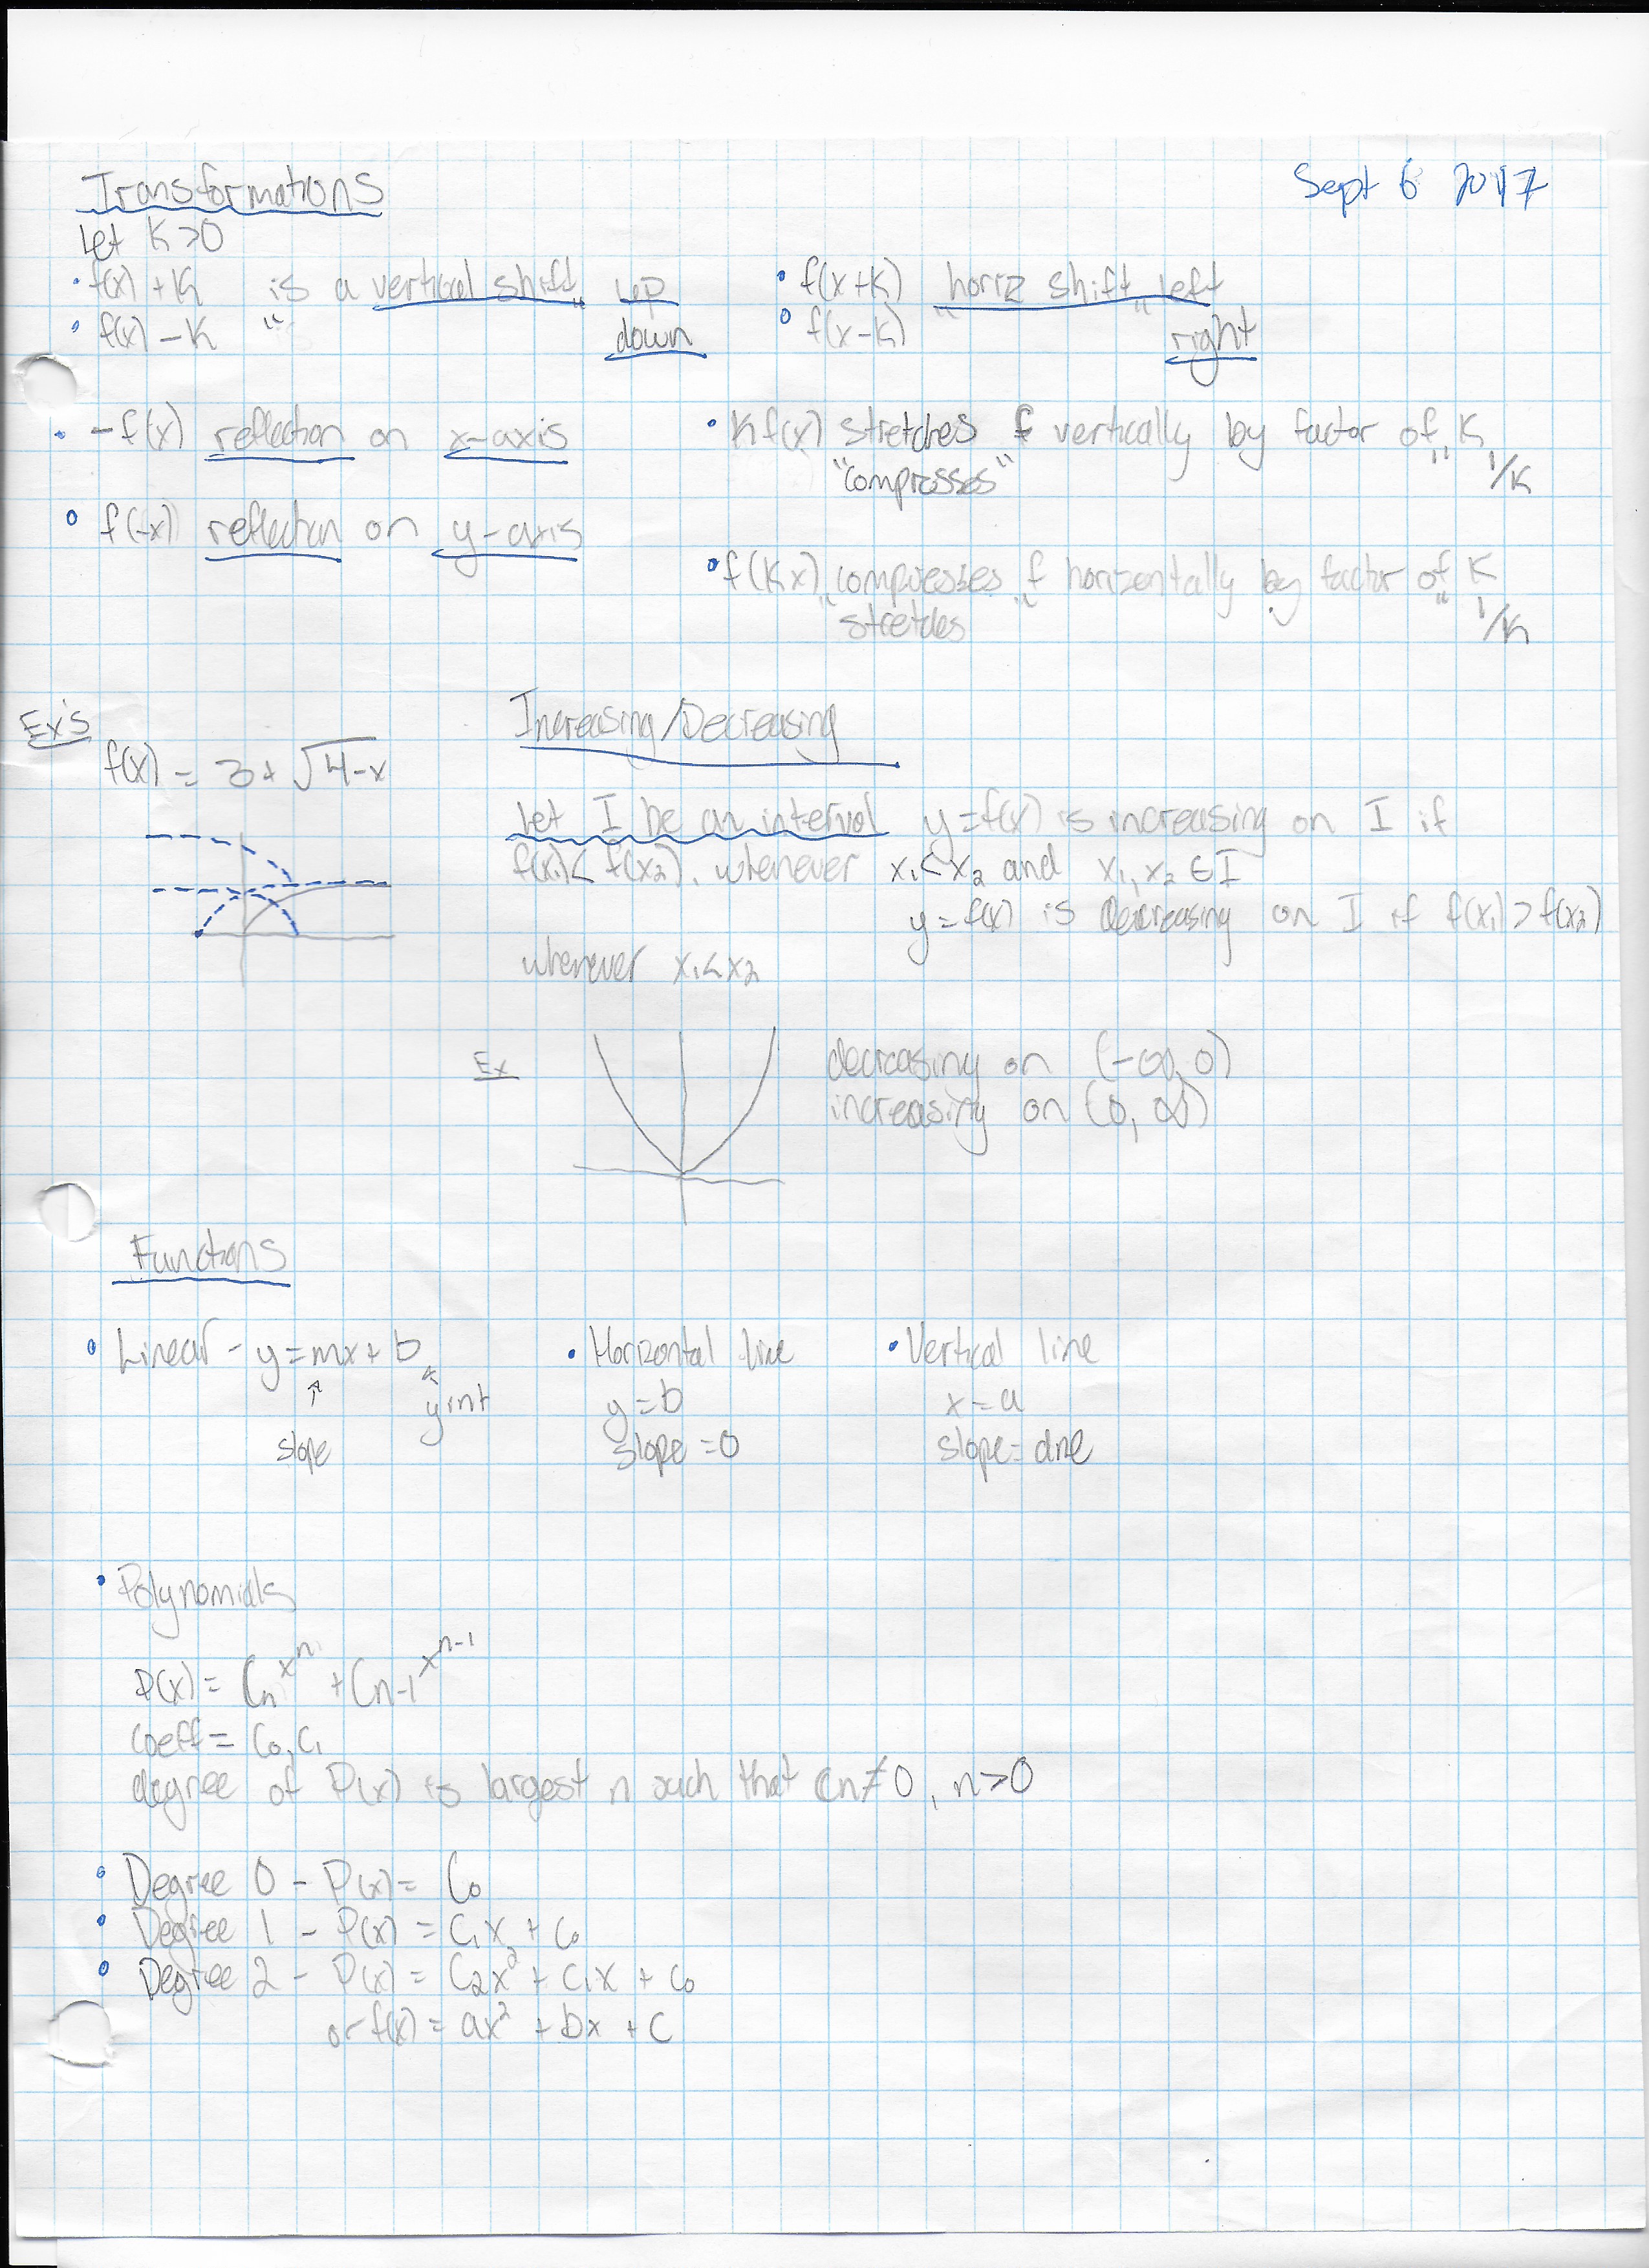 Transformations
Sept 6 2017
Let K>0
• f(x) + K is a vertical shift up
• f(x) - K " " down
• f(x+K) horiz shift left
• f(x-K) " " right
• -f(x) reflection on x-axis
• f(-x) reflection on y-axis
• Kf(x) stretches f vertically by factor of K
"compresses" " 1/K
• f(Kx) compresses f horizontally by factor of K
" stretches " " 1/K
Ex's
f(x) = 3 + √4-x
Increasing/Decreasing
Let I be an interval y=f(x) is increasing on I if
f(x₁)< f(x₂), whenever x₁<x₂ and x₁, x₂ ∈ I
y=f(x) is decreasing on I if f(x₁) > f(x₂)
whenever x₁<x₂
Ex
decreasing on (-∞, 0)
increasing on (0, ∞)
Functions
• Linear - y=mx+b
slope
y int
• Horizontal line
y=b
slope=0
• Vertical line
x=a
slope=dne
• Polynomials
P(x) = Cₙxⁿ + Cn-1xⁿ⁻¹
coeff = C₀, C₁
degree of P(x) is largest n such that Cn≠0, n>0
• Degree 0 - P(x) = C₀
• Degree 1 - P(x) = C₁x + C₀
• Degree 2 - P(x) = C₂x² + C₁x + C₀
or f(x) = ax² + bx + c